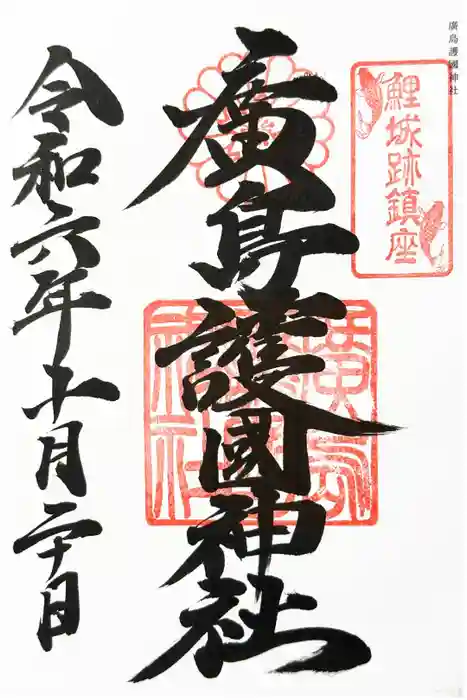 廣島護國神社
鯉城跡鎮座
廣島護國神社
廣島
神社
令和六年十一月二十日